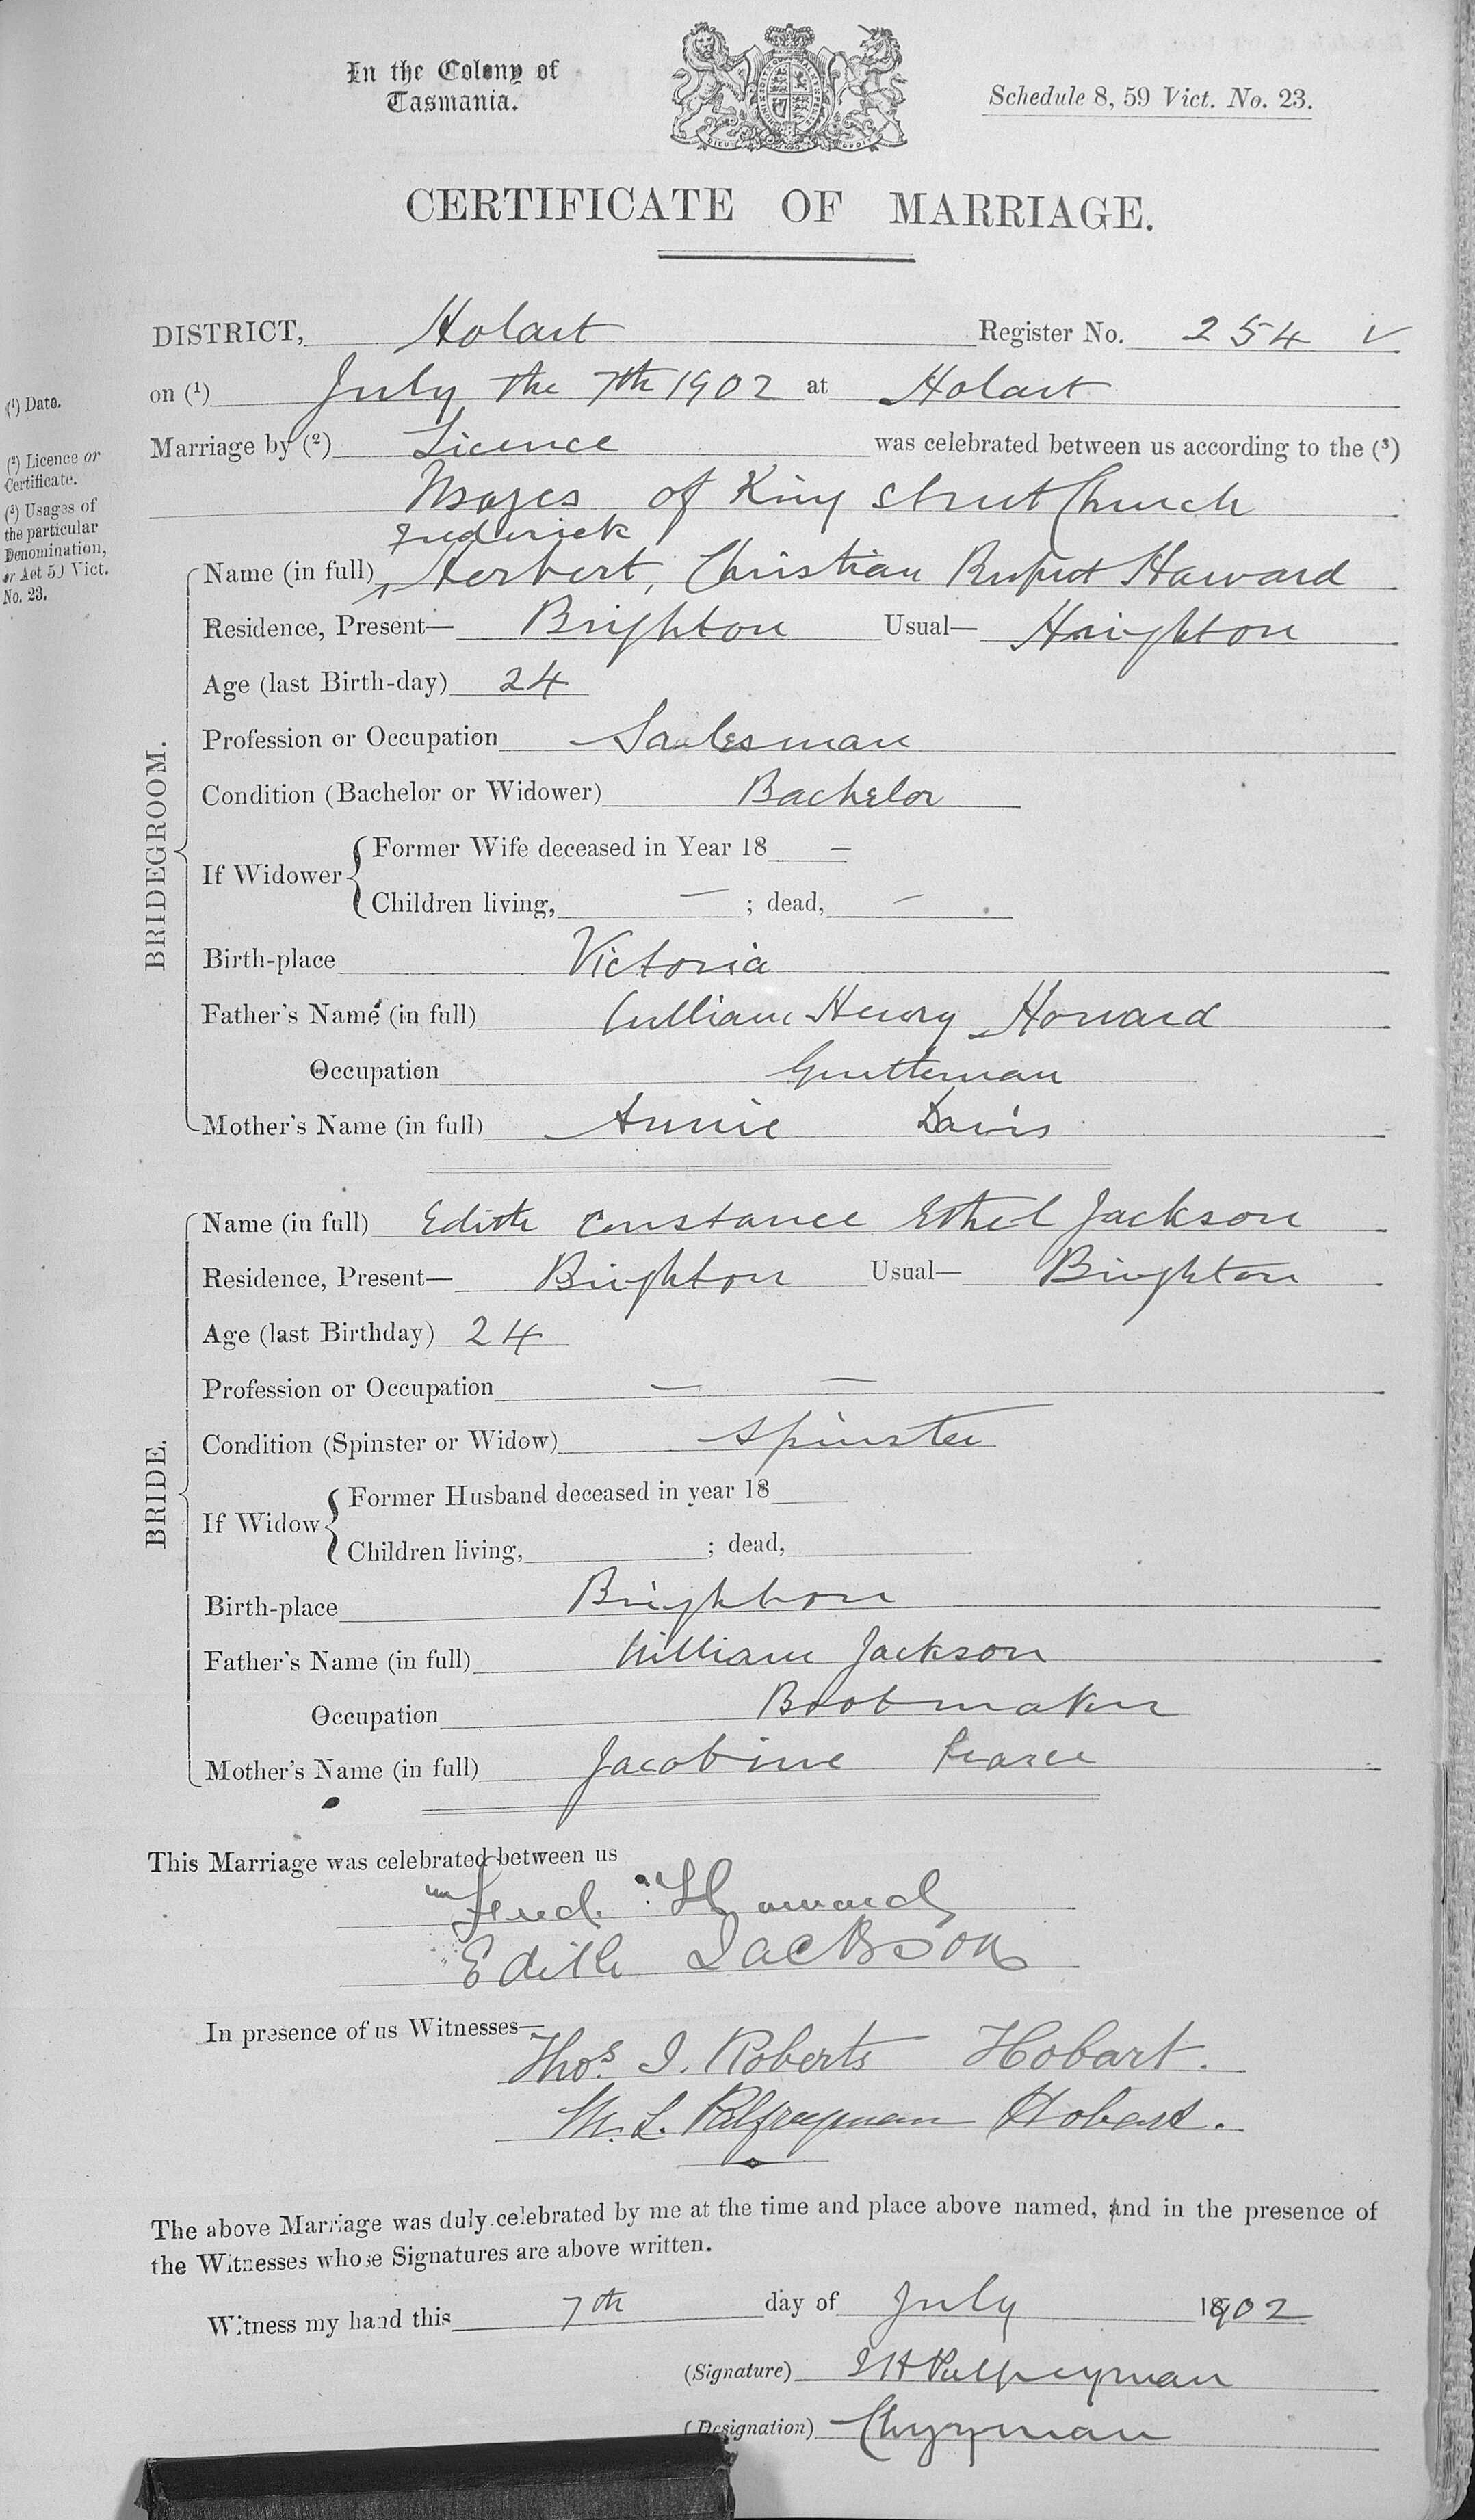 In the Colony of
Tasmania.
Schedule 8, 59 Vict. No. 23.
CERTIFICATE OF MARRIAGE.
DISTRICT, Hobart Register No. 254
on (¹) July the 7th 1902 at Hobart
(¹) Date.
Marriage by (²) Licence was celebrated between us according to the (³)
(²) Licence or
Certificate.
(³) Usages of
the particular
Denomination,
or Act 59 Vict.
No. 23.
Usages of King Street Church
Frederick
BRIDEGROOM.
Name (in full) Herbert, Christian Rupert Howard
Residence, Present— Brighton Usual— Brighton
Age (last Birth-day) 24
Profession or Occupation Salesman
Condition (Bachelor or Widower) Bachelor
If Widower Former Wife deceased in Year 18 —
Children living, — ; dead, —
Birth-place Victoria
Father's Name (in full) William Henry Howard
Occupation Gentleman
Mother's Name (in full) Annie Davis
BRIDE.
Name (in full) Edith Constance Ethel Jackson
Residence, Present— Brighton Usual— Brighton
Age (last Birthday) 24
Profession or Occupation — —
Condition (Spinster or Widow) Spinster
If Widow Former Husband deceased in year 18
Children living, ; dead,
Birth-place Brighton
Father's Name (in full) William Jackson
Occupation Bootmaker
Mother's Name (in full) Jacobine Pearce
This Marriage was celebrated between us
Fred Howard
Edith Jackson
In presence of us Witnesses—
Thos. I. Roberts Hobart.
M. L. Palfreyman Hobart.
The above Marriage was duly celebrated by me at the time and place above named, and in the presence of
the Witnesses whose Signatures are above written.
Witness my hand this 7th day of July 1902
(Signature) Palfreyman
(Designation) Clergyman